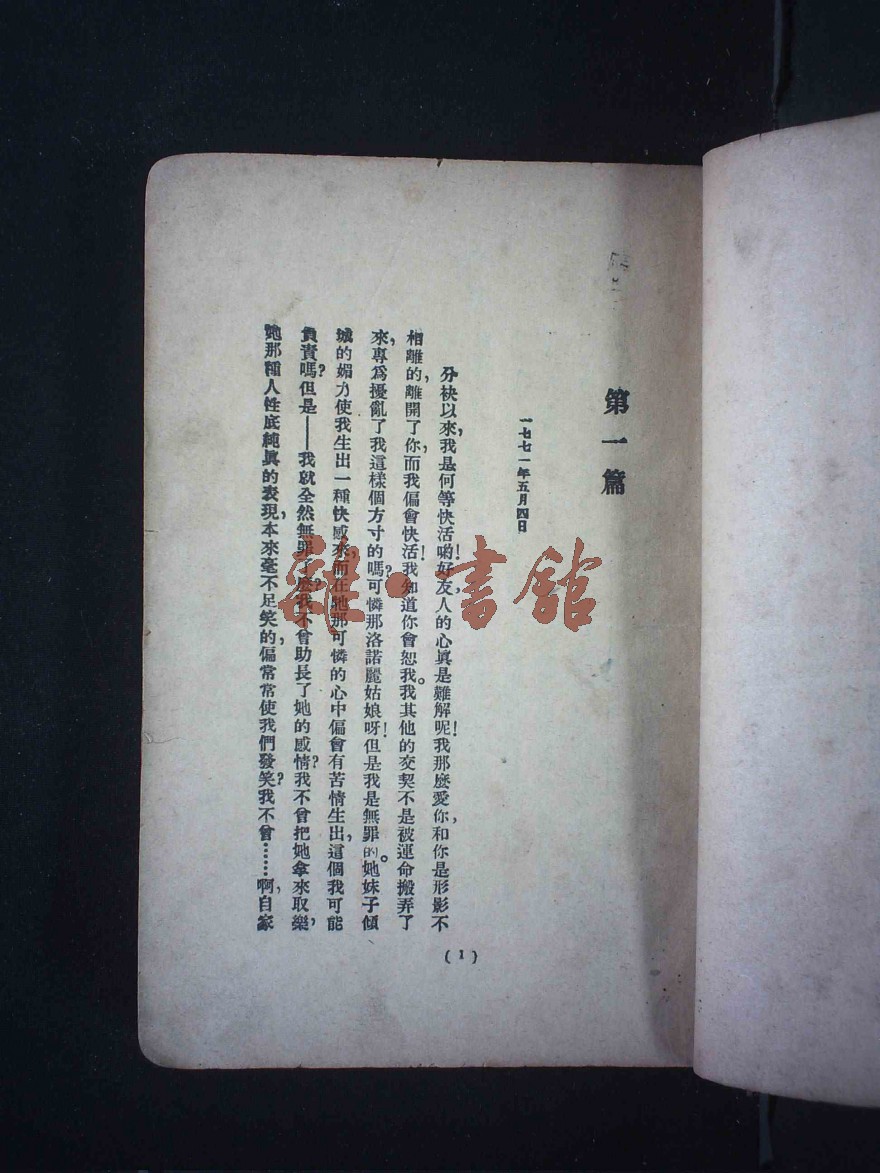 第一篇
一七七一年五月四日
分袂以來,我是何等快活喲!好友,人的心眞是難解呢!我那麼愛你,和你是形影不
相離的,離開了你,而我偏會快活!我知道你會恕我。我其他的交契不是被運命搬弄了
來,專爲擾亂了我這樣個方寸的嗎?可憐那洛諾麗姑娘呀!但是我是無罪的。她妹子傾
城的媚力使我生出一種快感來,而在她那可憐的心中偏會有苦情生出,這個我可能
負責嗎?但是——我就全然無罪了麼?我不曾助長了她的感情?我不曾把她拿來取樂,
她那種人性底純眞的表現,本來毫不足笑的,偏常常使我們發笑?我不曾……啊,自家
(1)
雜·書館